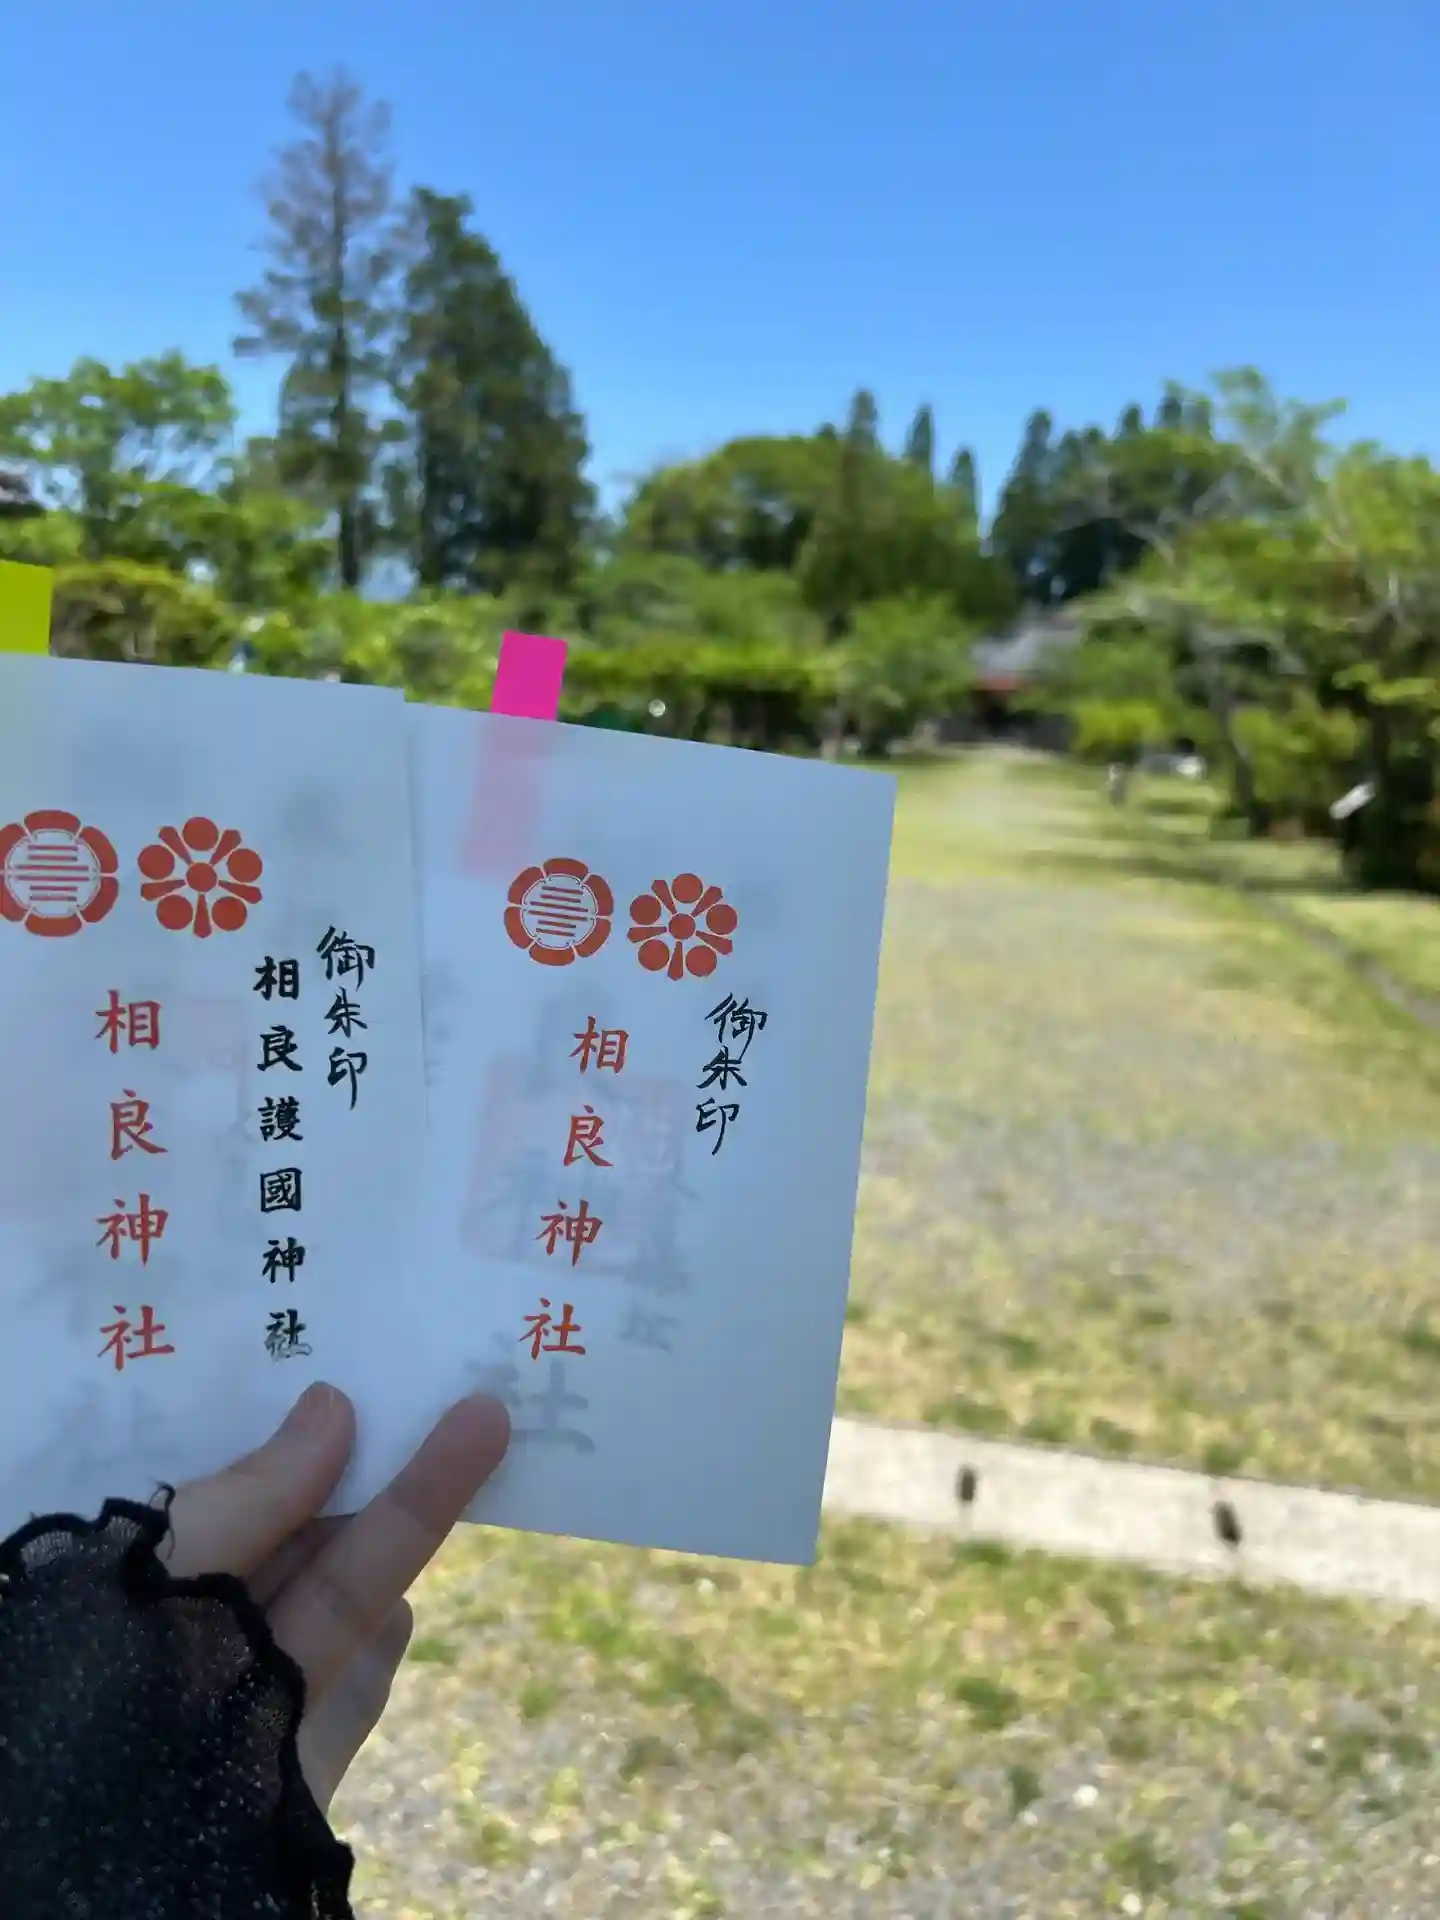 御朱印
相良神社
御朱印
相良護國神社
相良神社